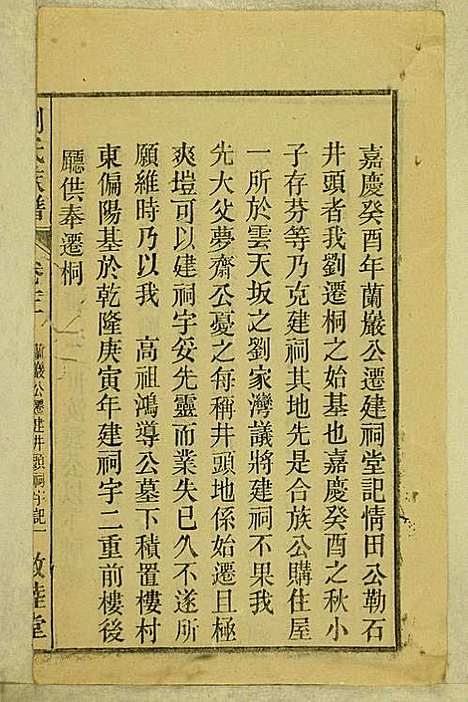 嘉慶癸酉年蘭巖公遷建祠堂記情田公勒石
井頭者我劉遷桐之始基也嘉慶癸酉之秋小
子存芬等乃克建祠其地先是合族公購住屋
一所於雲天坂之劉家灣議將建祠不果我
先大父夢齋公憂之每稱井頭地係始遷且極
爽塏可以建祠宇妥先靈而業失已久不遂所
願維時乃以我　高祖鴻導公墓下積置樓村
東偏陽基於乾隆庚寅年建祠宇二重前樓後
廳供奉遷桐
氏族譜
蘭巖公遷建井頭祠宇記一
敦睦堂